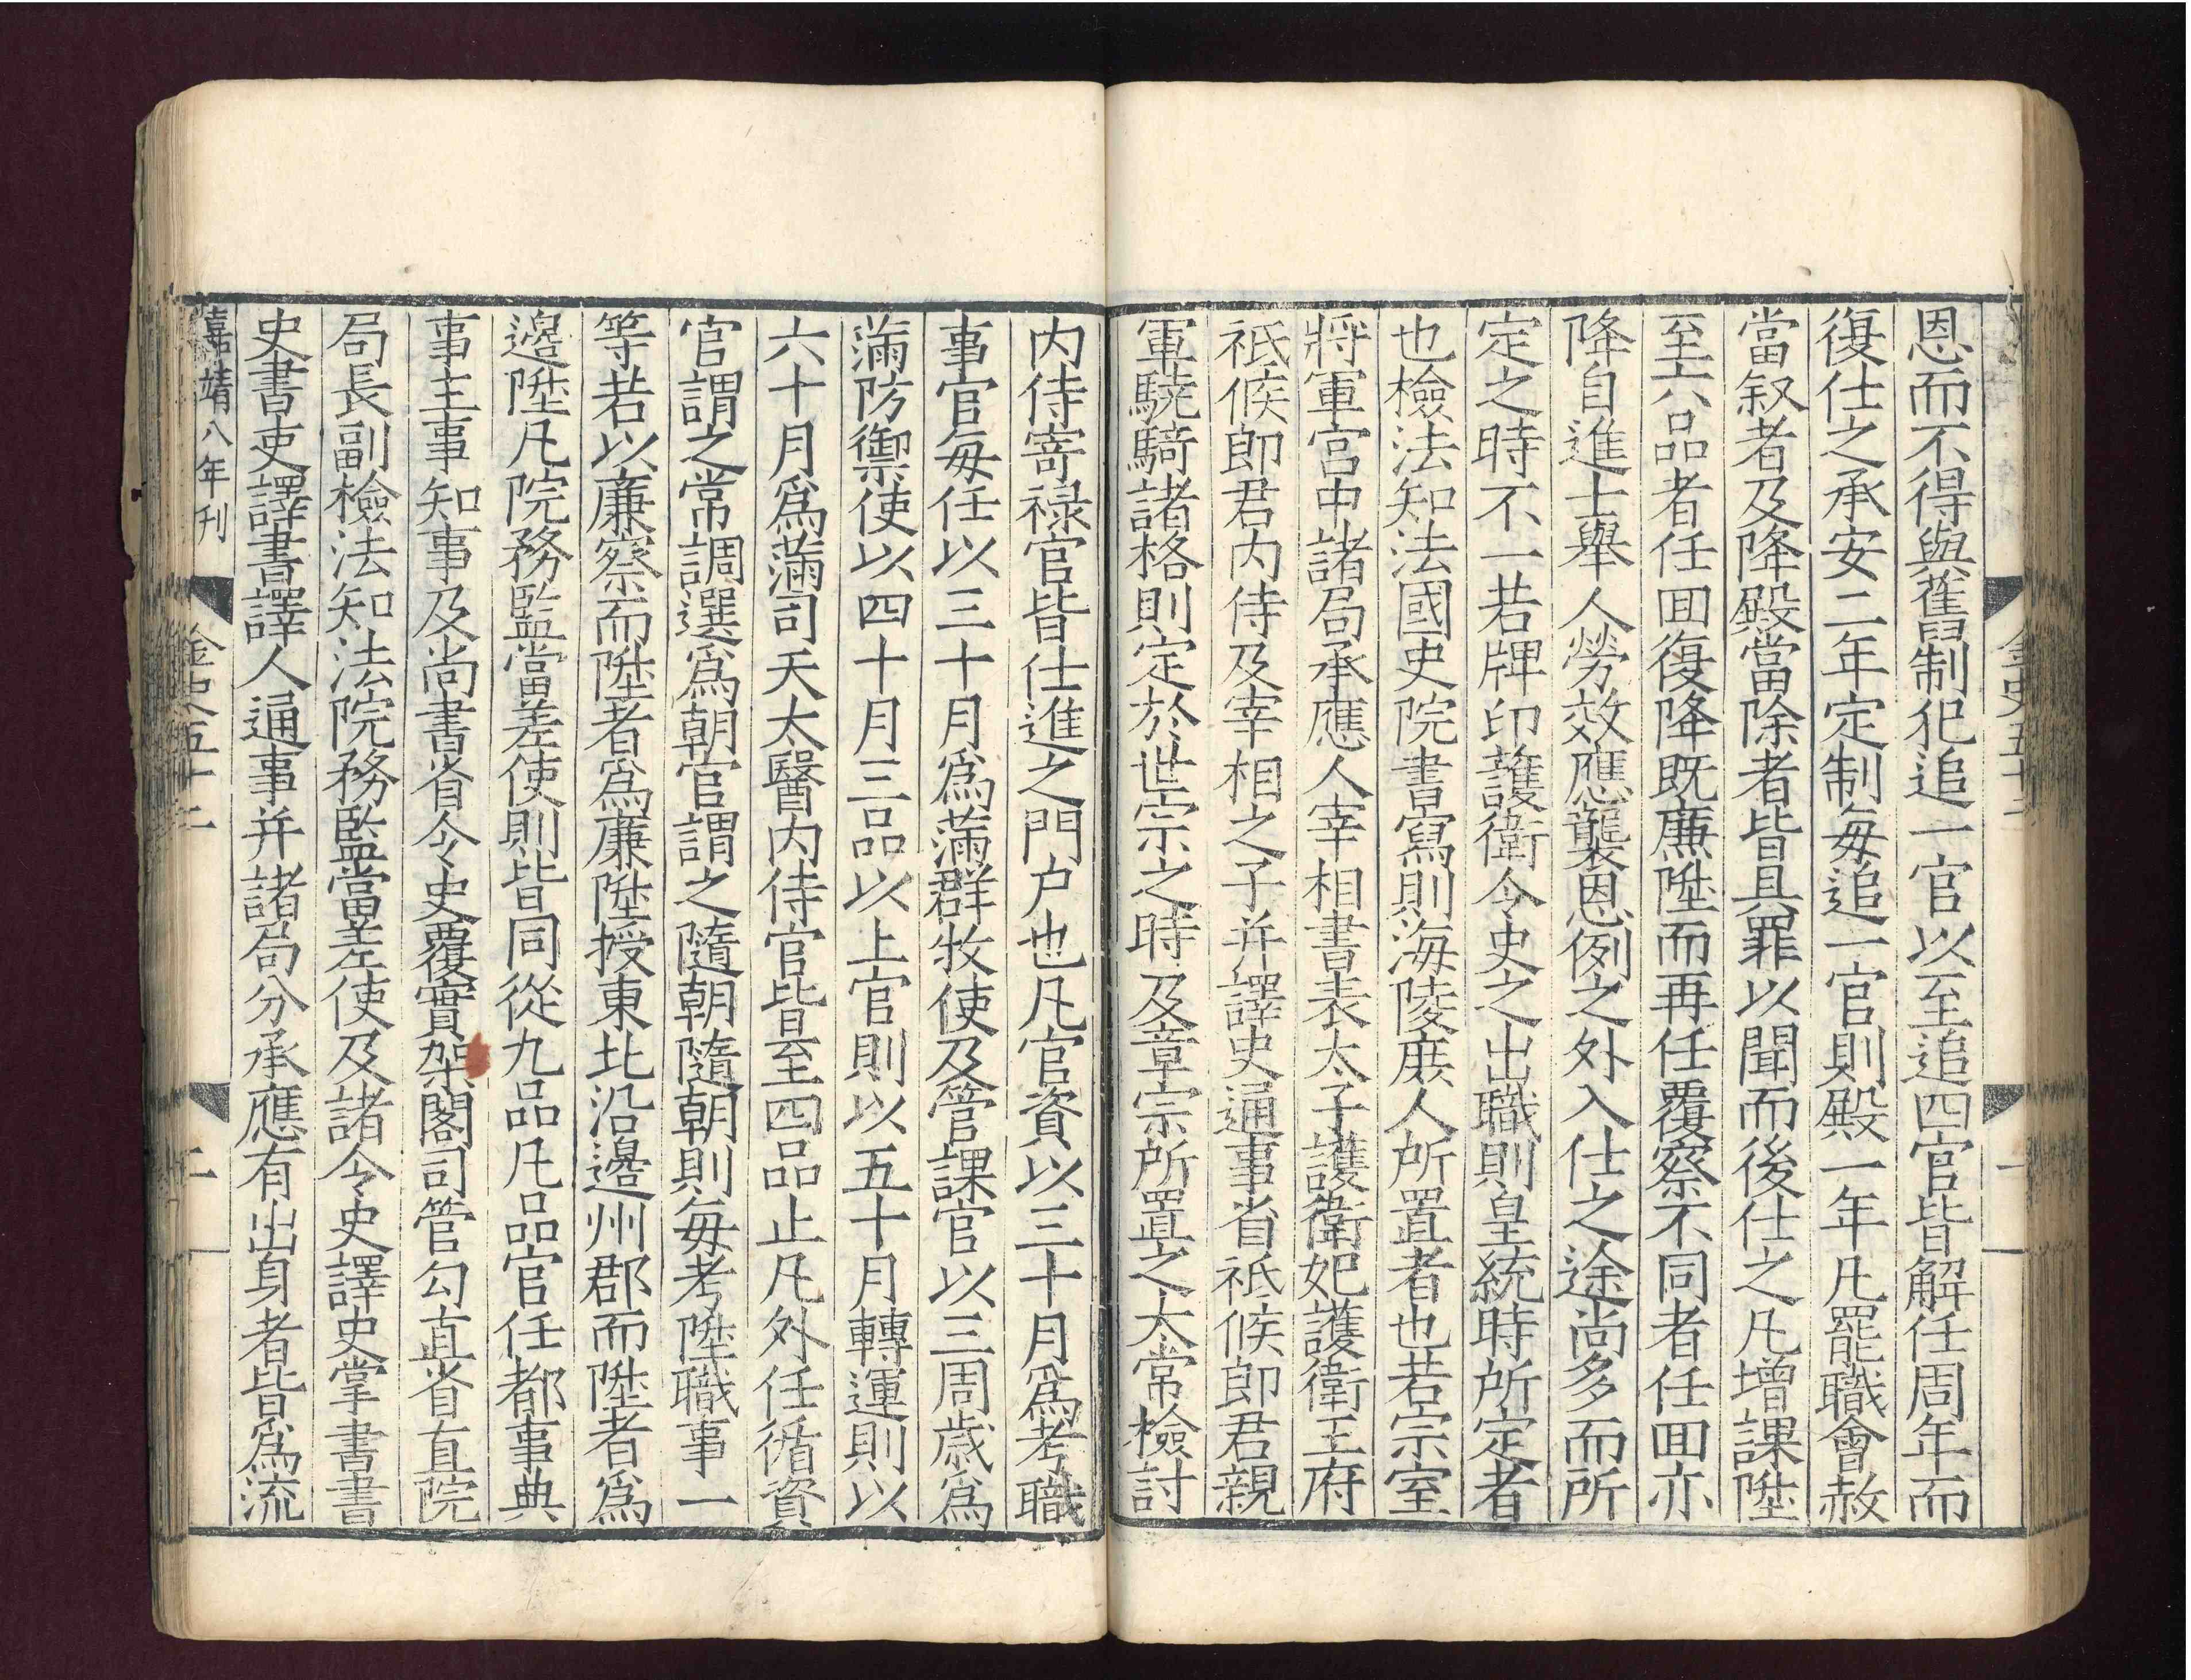 恩而不得與舊制犯追一官以至追四官皆解任周年而
復仕之承安二年定制每追一官則殿一年凡罷職會赦
當叙者及降殿當除者皆具罪以聞而後仕之凡增課陞
至六品者任回復降既廉陞而再任覆察不同者任回亦
降自進士舉人勞效應襲恩例之外入仕之途尚多而所
定之時不一若牌印護衛令史之出職則皇統時所定者
也檢法知法國史院書寫則海陵庶人所置者也若宗室
將軍宮中諸局承應人宰相書表太子護衛妃護衛王府
祇候郎君内侍及宰相之子并譯史通事省祇候郎君親
軍驍騎諸格則定於世宗之時及章宗所置之太常檢討
内侍寄禄官皆仕進之門户也凡官資以三十月爲考職
事官每任以三十月爲滿群牧使及管課官以三周歲爲
滿防禦使以四十月三品以上官則以五十月轉運則以
六十月爲滿司天太醫内侍官皆至四品止凡外任循資
官謂之常調選爲朝官謂之隨朝隨朝則每考陞職事一
等若以廉察而陞者爲廉陞授東北沿邊州郡而陞者爲
邊陞凡院務監當差使則皆同從九品凡品官任都事典
事主事知事及尚書省令史覆實架閣司管勾直省直院
局長副檢法知法院務監當差使及諸令史譯史掌書書
史書吏譯書譯人通事并諸局分承應有出身者皆爲流
嘉靖八年刊 金史五十二 二